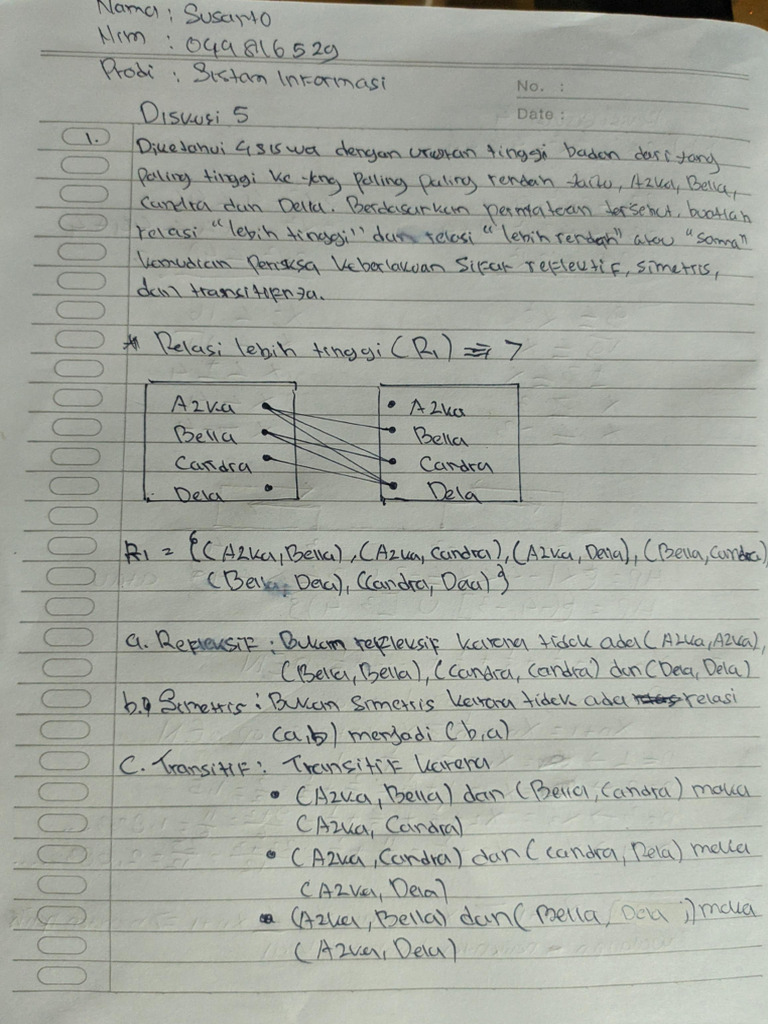 Nama : Susanto
Nim : 049816529
Prodi : Sistam Informasi
No. :
Date :
Diskusi 5
1. Diketahui 4 siswa dengan urutan tinggi badan dari yang
paling tinggi ke yng paling paling rendah yaitu, Azka, Bella,
Candra dan Della. Berdasarkan pernyataan tersebut, buatlah
relasi "lebih tinggi" dan relasi "lebih rendah" atau "sama"
kemudian periksa keberlakuan sifat reflektif, simetris,
dan transitifnya.
* Relasi lebih tinggi (R1) ⇒ >
Azka • • Azka
Bella • • Bella
Candra • • Candra
Dela • • Dela
R1 = {(Azka, Bella), (Azka, Candra), (Azka, Della), (Bella, Candra)
(Bella, Dela), (Candra, Dela)}
a. Refleksif : Bukan refleksif karena tidak ada (Azka, Azka),
(Bella, Bella), (Candra, Candra) dan (Dela, Dela)
b. Simetris : Bukan Simetris karena tidak ada relasi
(a,b) menjadi (b,a)
C. Transitif : Transitif karena
• (Azka, Bella) dan (Bella, Candra) maka
(Azka, Candra)
• (Azka, Candra) dan (Candra, Dela) maka
(Azka, Dela)
• (Azka, Bella) dan (Bella, Dela) maka
(Azka, Dela)